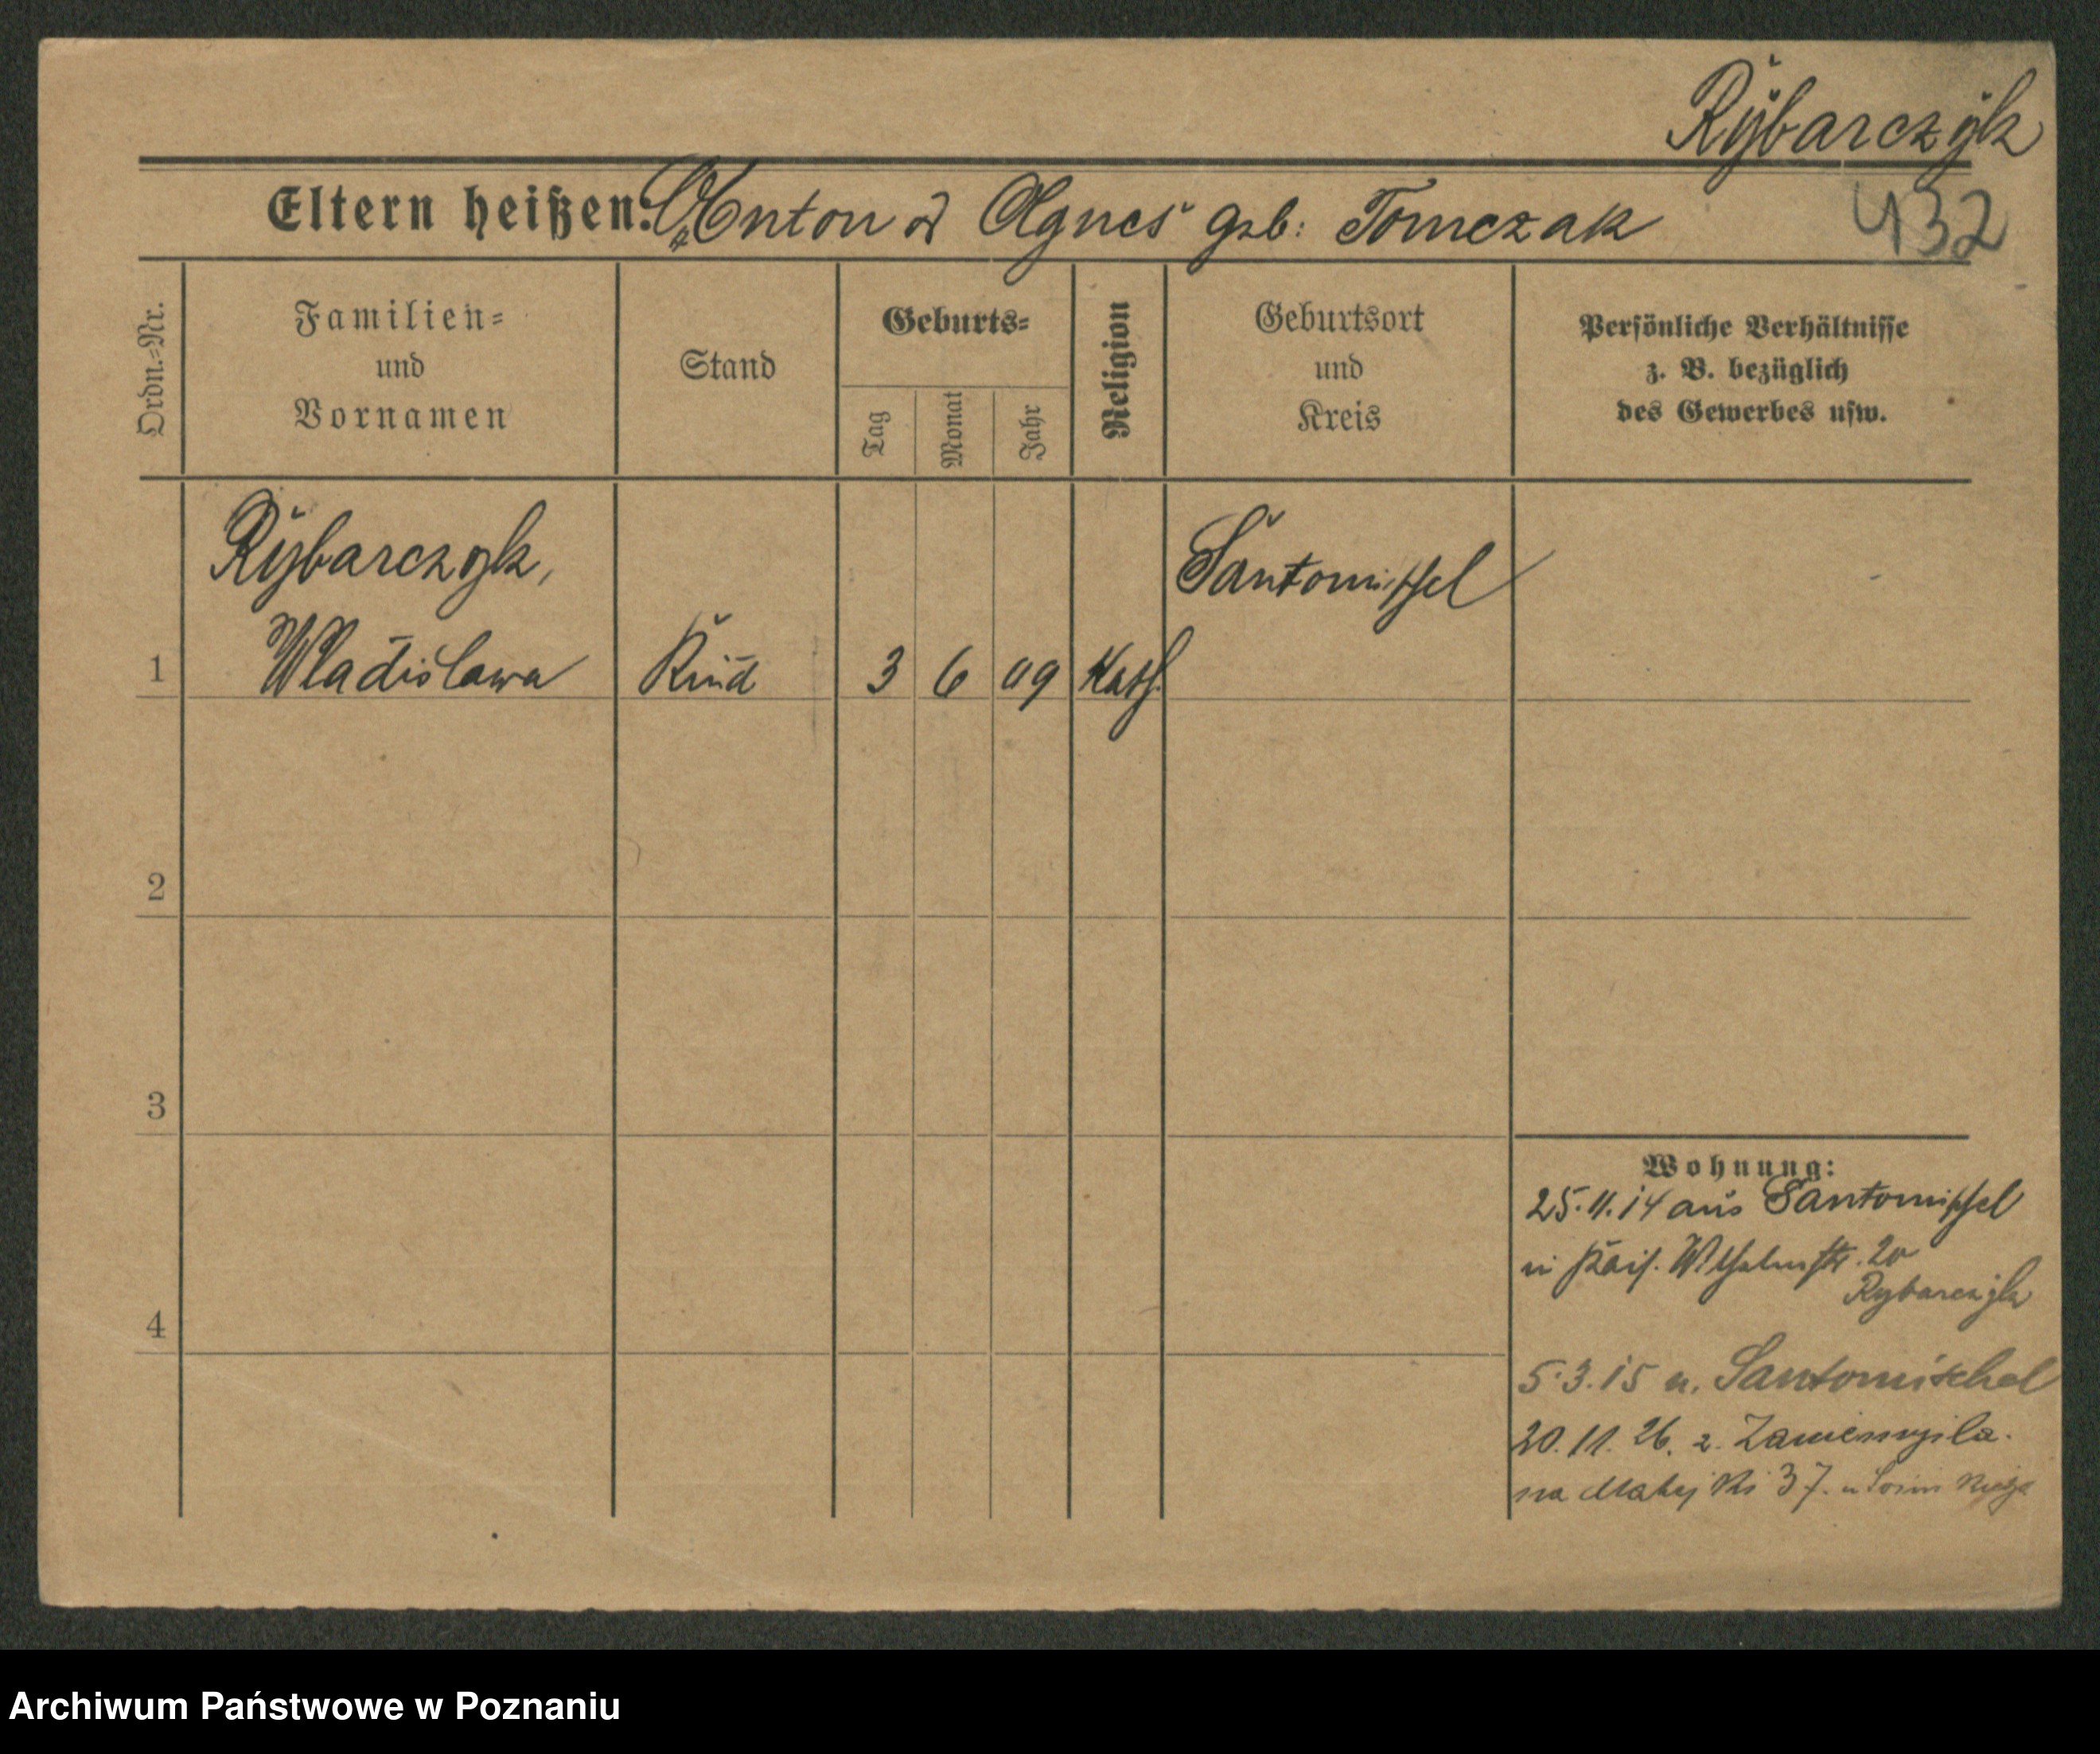 Rybarczyk
Eltern heißen: Anton & Agnes geb: Tomczak
432
Ordn.=Nr.
Familien=
und
Vornamen
Stand
Geburts=
Tag
Monat
Jahr
Religion
Geburtsort
und
Kreis
Persönliche Verhältnisse
z. B. bezüglich
des Gewerbes usw.
Rybarczyk,
Santomischel
1 Wladislawa Kind 3 6 09 Kath.
2
3
4
Wohnung:
25.11.14 aus Santomischel
in Kais. Wilhelmstr. 20
Rybarczyk
5.3.15 n. Santomischel
20.11.26. z. Zaniemyśla.
na 37.
Archiwum Państwowe w Poznaniu